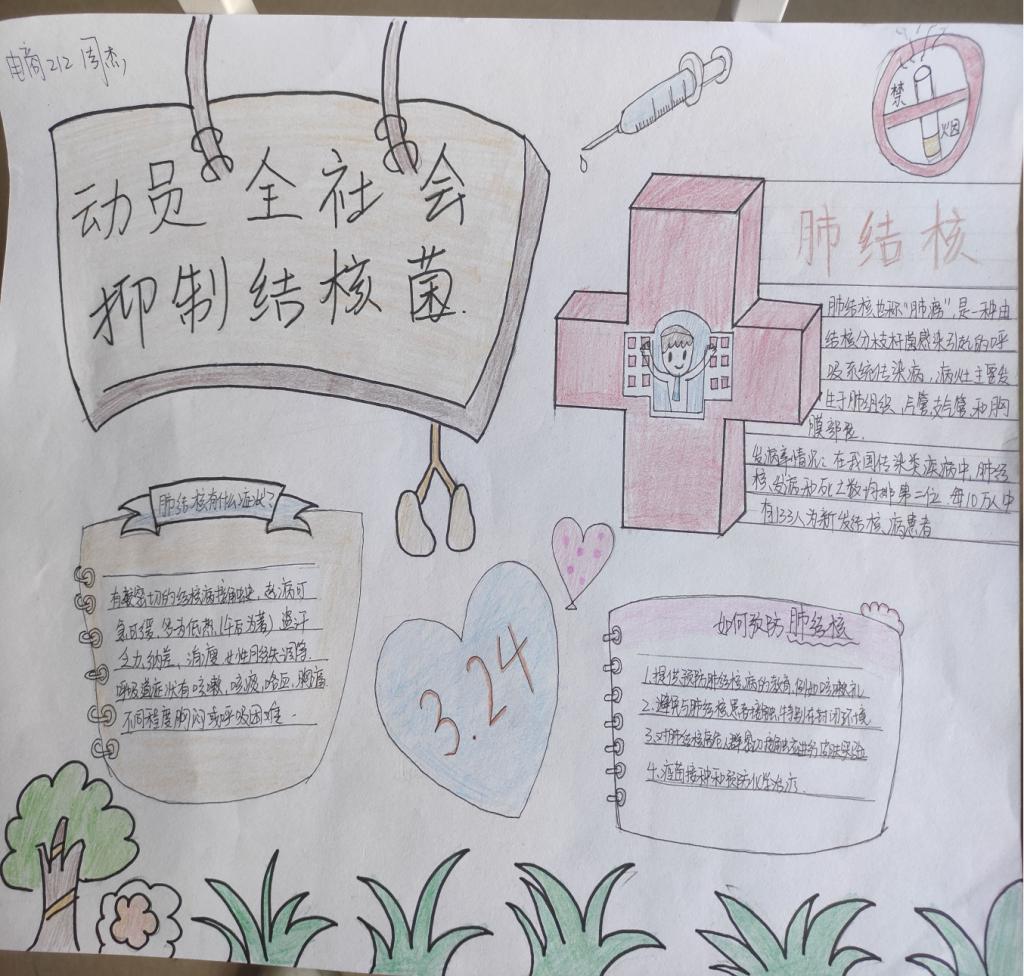 电商212 周杰
动员全社会
抑制结核菌.
禁
烟
肺结核
肺结核也称"肺痨",是一种由
结核分枝杆菌感染引起的呼
吸系统传染病,病灶主要发
生于肺组织、气管、支气管、和胸
膜部位.
发病率情况:在我国传染类疾病中,肺结
核发病和死亡数均排第二位,每10万人中
有133人为新发结核病患者
肺结核有什么症状?
有较密切的结核病接触史,起病可
急可缓,多为低热(午后为著)盗汗
乏力,纳差,消瘦,女性月经失调等.
呼吸道症状有咳嗽,咳痰,咯血,胸痛
不同程度胸闷或呼吸困难.
3.24
如何预防肺结核
1.提供预防肺结核病的教育,例如咳嗽礼
2.避免与肺结核患者接触,特别在封闭环境
3.对肺结核病危人群密切接触者进行皮肤实验
4.疫苗接种和预防化学治疗.